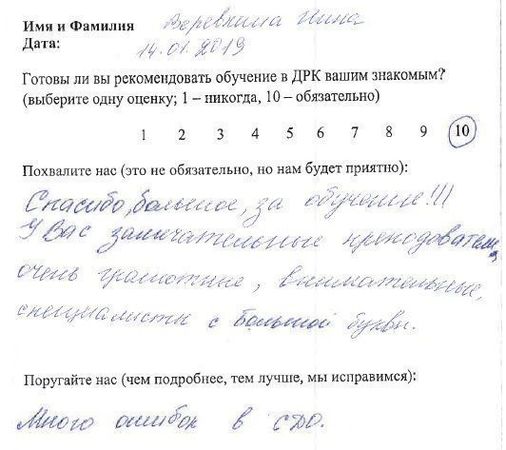 Имя и Фамилия Веревкина Нина
Дата: 14.01.2019
Готовы ли вы рекомендовать обучение в ДРК вашим знакомым?
(выберите одну оценку; 1 – никогда, 10 – обязательно)
1 2 3 4 5 6 7 8 9 10
Похвалите нас (это не обязательно, но нам будет приятно):
Спасибо, большое, за обучение!!!
У Вас замечательные преподователи,
очень грамотные, внимательные,
специалисты с Большой буквы.
Поругайте нас (чем подробнее, тем лучше, мы исправимся):
Много ошибок в СДО.